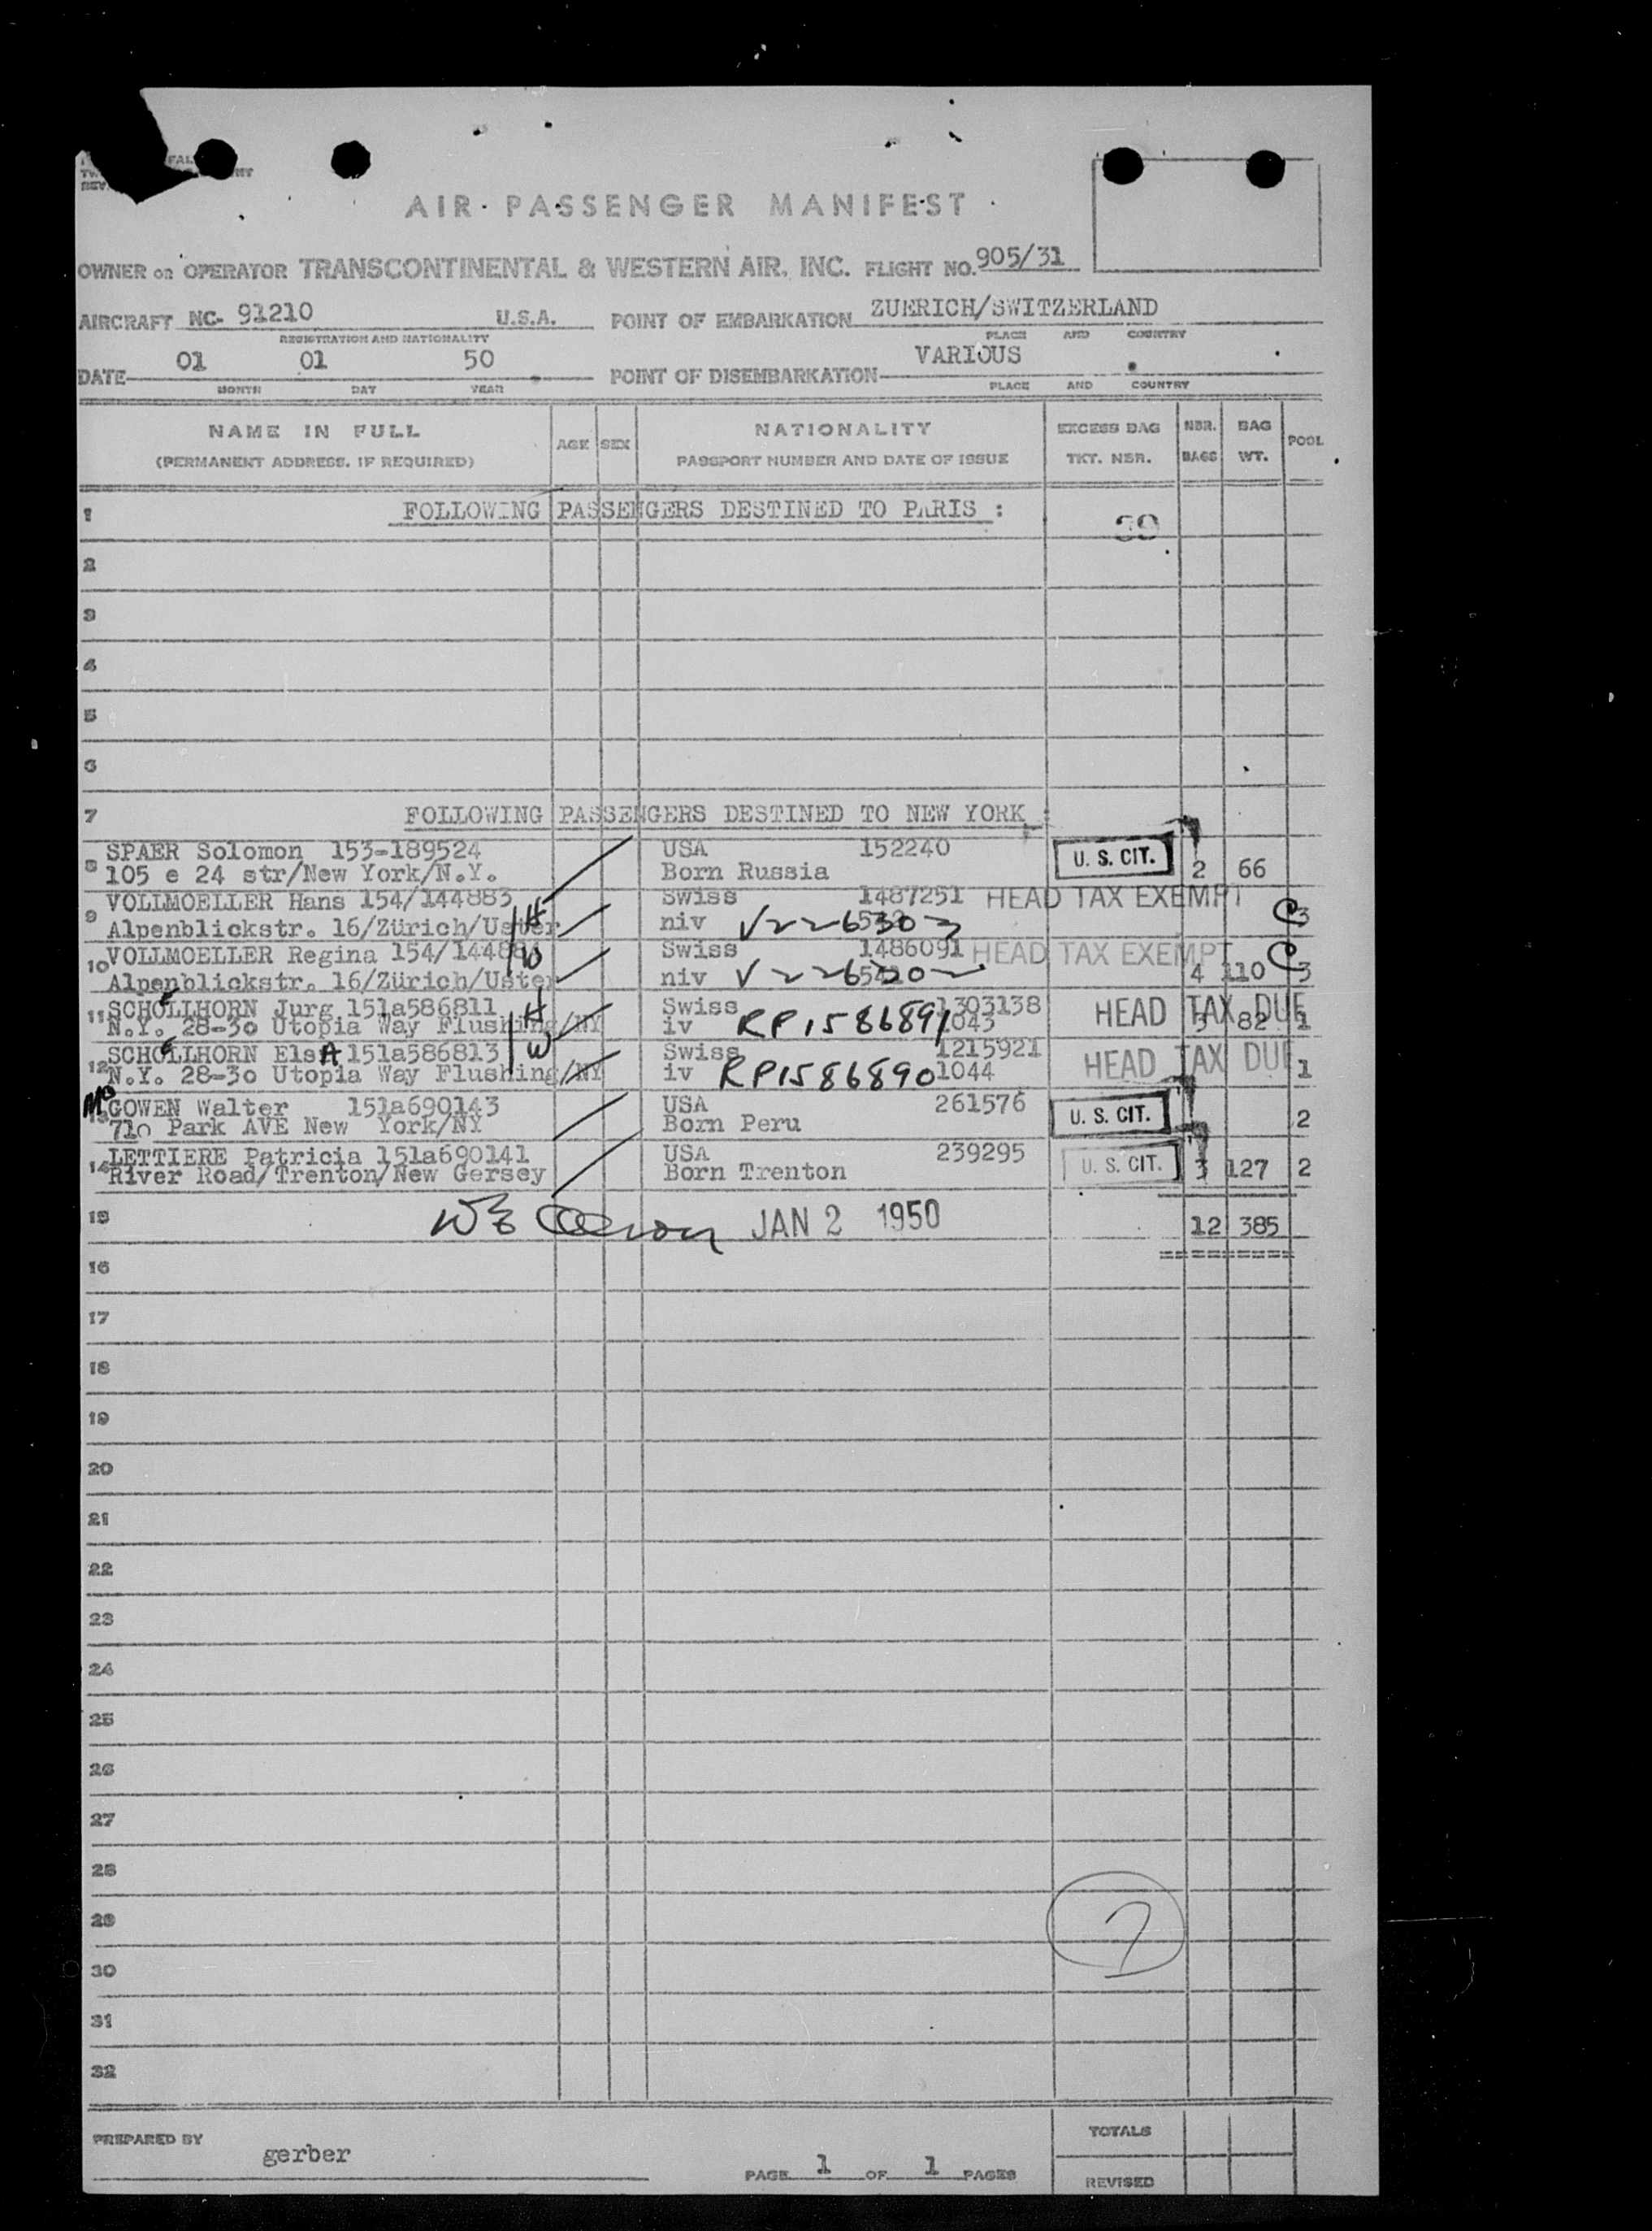 AIR PASSENGER MANIFEST
OWNER OR OPERATOR TRANSCONTINENTAL & WESTERN AIR, INC. FLIGHT NO. 905/31
AIRCRAFT NC- 91210 U.S.A. POINT OF EMBARKATION ZUERICH/SWITZERLAND
REGISTRATION AND NATIONALITY PLACE AND COUNTRY
DATE 01 01 50 POINT OF DISEMBARKATION VARIOUS
MONTH DAY YEAR PLACE AND COUNTRY
NAME IN FULL AGE SEX NATIONALITY EXCESS BAG NBR. BAG POOL
(PERMANENT ADDRESS, IF REQUIRED) PASSPORT NUMBER AND DATE OF ISSUE TKT. NBR. BAGS WT.
1 FOLLOWING PASSENGERS DESTINED TO PARIS :
39
2
3
4
5
6
7 FOLLOWING PASSENGERS DESTINED TO NEW YORK :
8 SPAER Solomon 153-189524 USA 152240 U. S. CIT.
105 e 24 str/New York/N.Y. Born Russia 2 66
9 VOLLMOELLER Hans 154/144883 H Swiss 1487251 HEAD TAX EXEMPT
Alpenblickstr. 16/Zürich/Uster niv 3
10 VOLLMOELLER Regina 154/144884 W Swiss 1486091 HEAD TAX EXEMPT
Alpenblickstr. 16/Zürich/Uster niv 4 110 3
11 SCHOELLHORN Jurg 151a586811 H Swiss 1303138 HEAD TAX DUE
N.Y. 28-30 Utopia Way Flushing/NY iv RP1586891 1043 3 82 1
12 SCHOELLHORN ElsA 151a586813 W Swiss 1215921 HEAD TAX DUE
N.Y. 28-30 Utopia Way Flushing/NY iv RP1586890 1044 1
13 GOWEN Walter 151a690143 USA 261576 U. S. CIT.
710 Park AVE New York/NY Born Peru 2
14 LETTIERE Patricia 151a690141 USA 239295 U. S. CIT.
River Road/Trenton/New Gersey Born Trenton 3 127 2
15 JAN 2 1950 12 385
16
17
18
19
20
21
22
23
24
25
26
27
28
29
7
30
31
32
PREPARED BY gerber
PAGE 1 OF 1 PAGES
TOTALS
REVISED